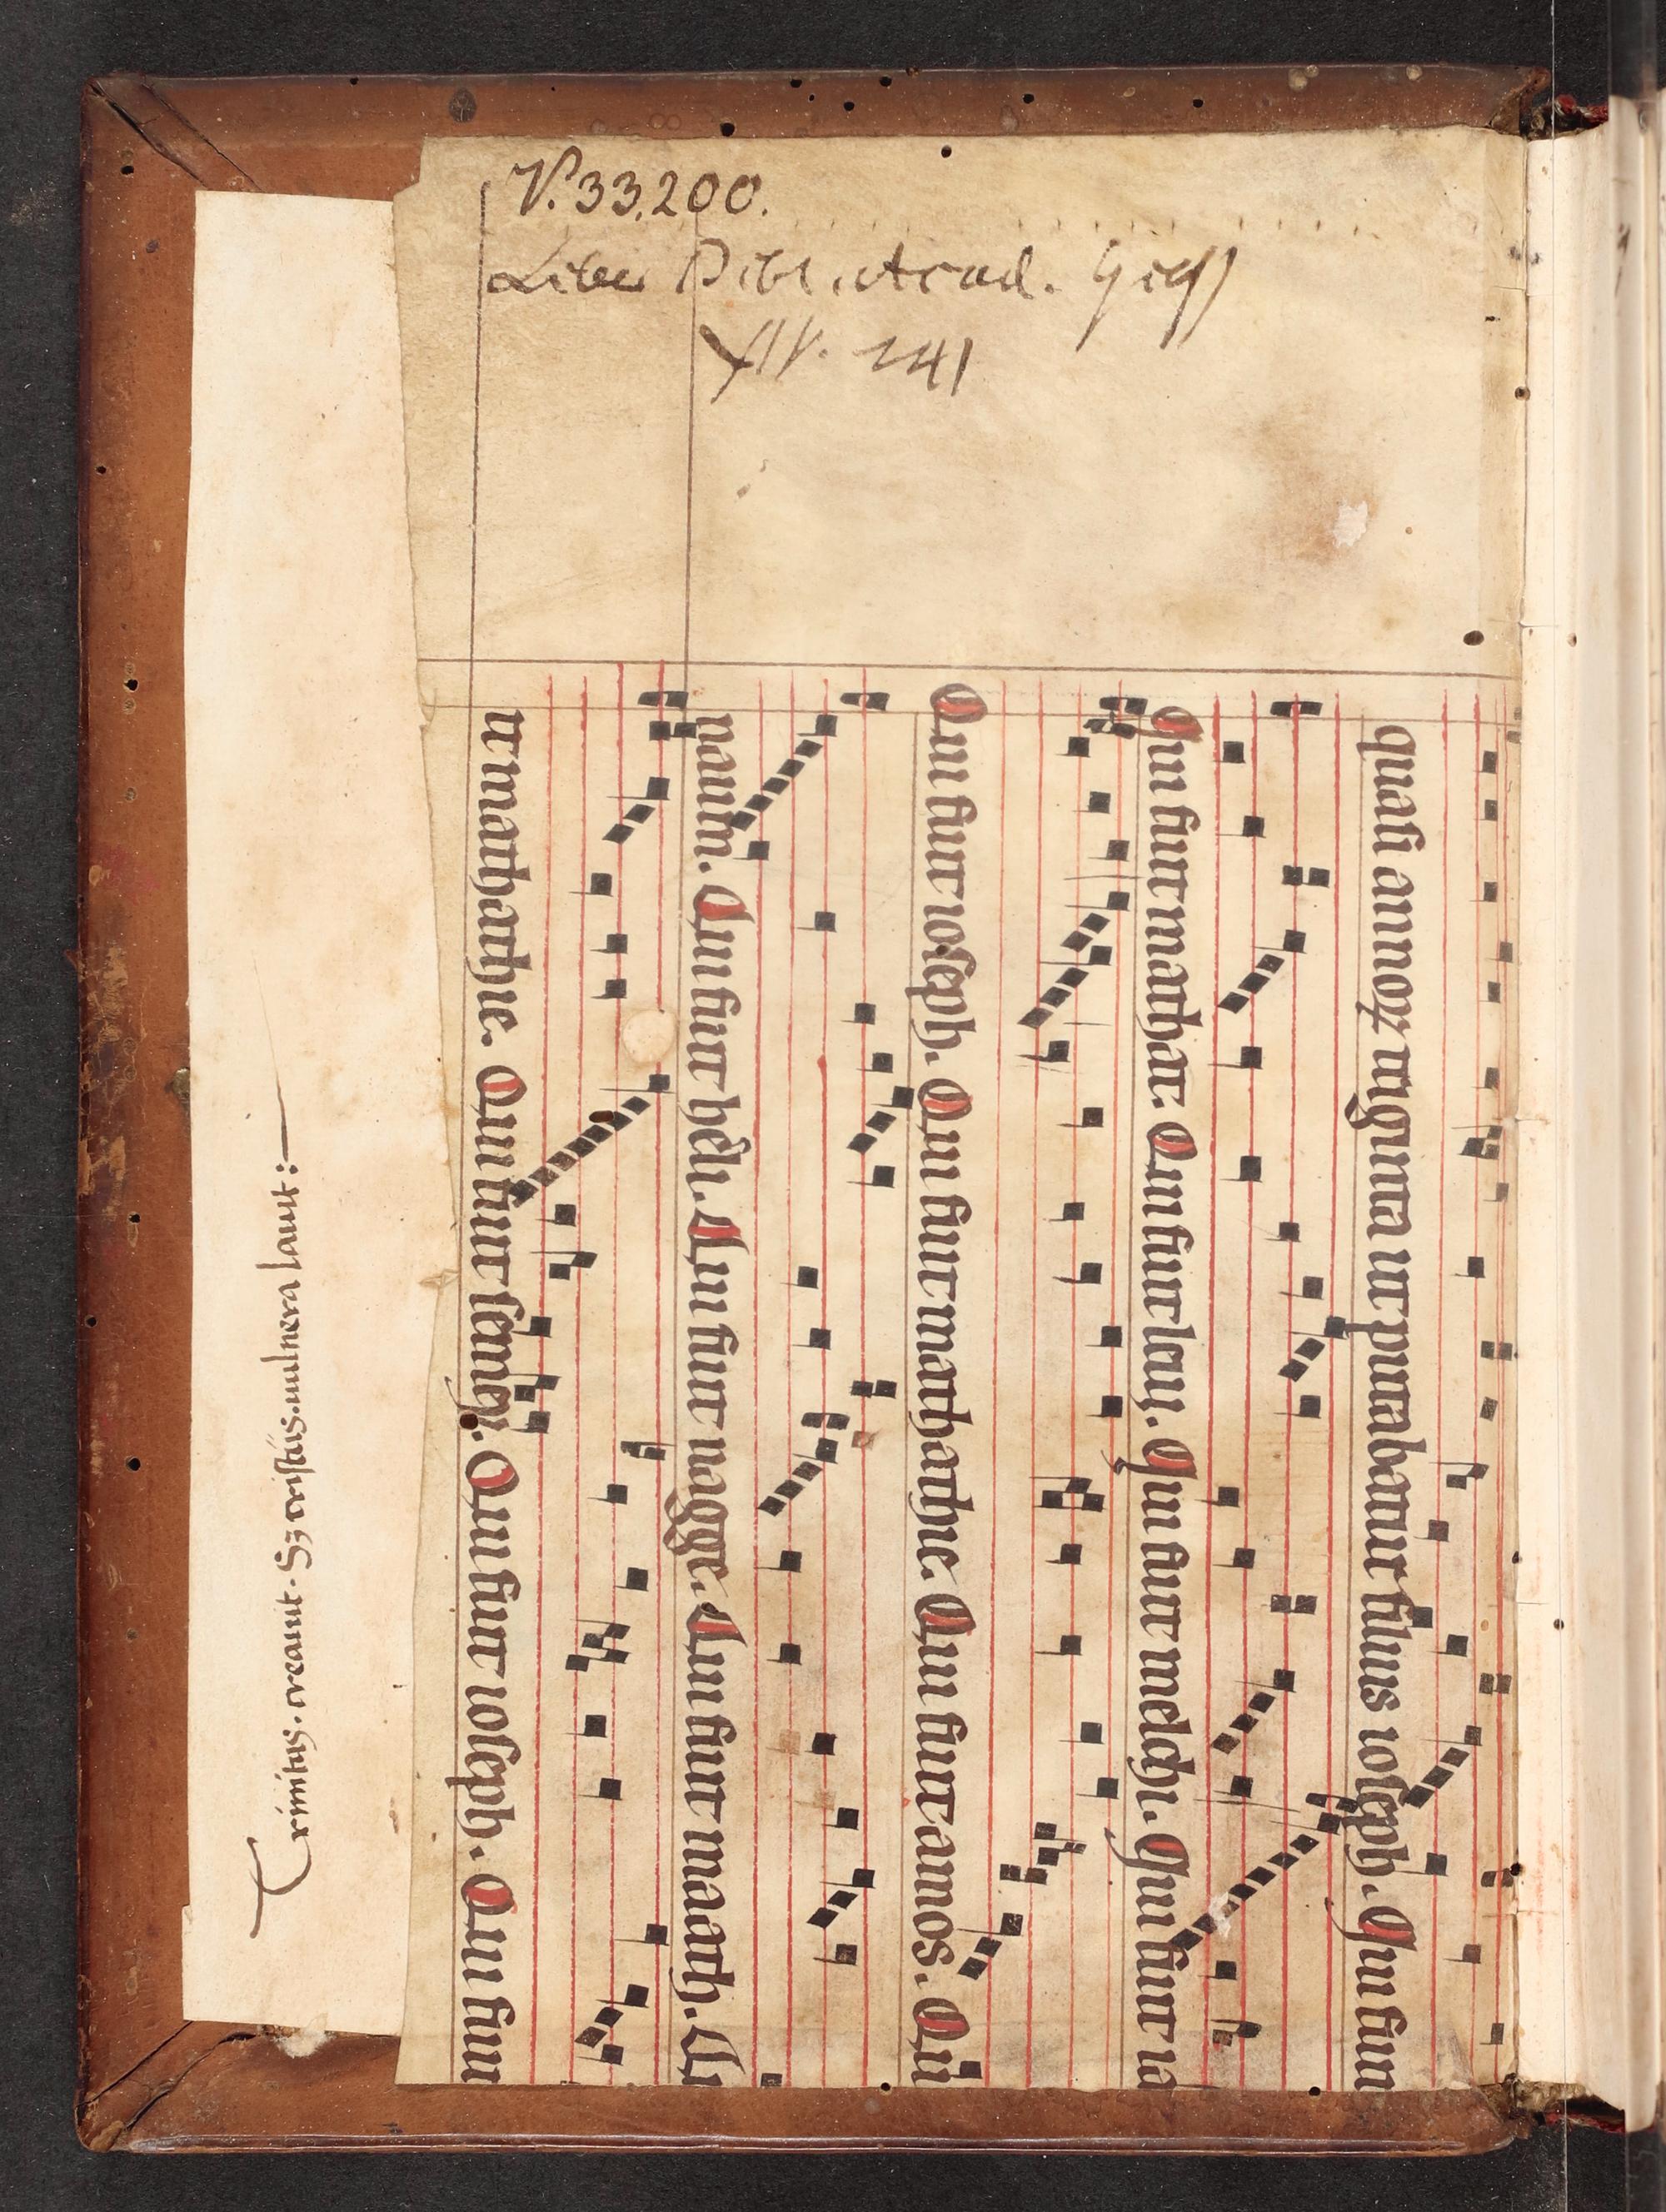 V. 33,200.
Liber Bibl. Acad. Giess
XIV. 241
quasi annoꝝ triginta ut putabatur filius ioseph. Qui fuit
Qui fuit mathat. Qui fuit laui. Qui fuit melchi. Qui fuit ia
Qui fuit ioseph. Qui fuit matthathie. Qui fuit amos. Qui
naum. Qui fuit hesli. Qui fuit nagge. Qui fuit maath. Q
it mathathie. Qui fuit semei. Qui fuit ioseph. Qui fuit
Trinitas. creauit. Sꝫ cristus. uulnera lauit: